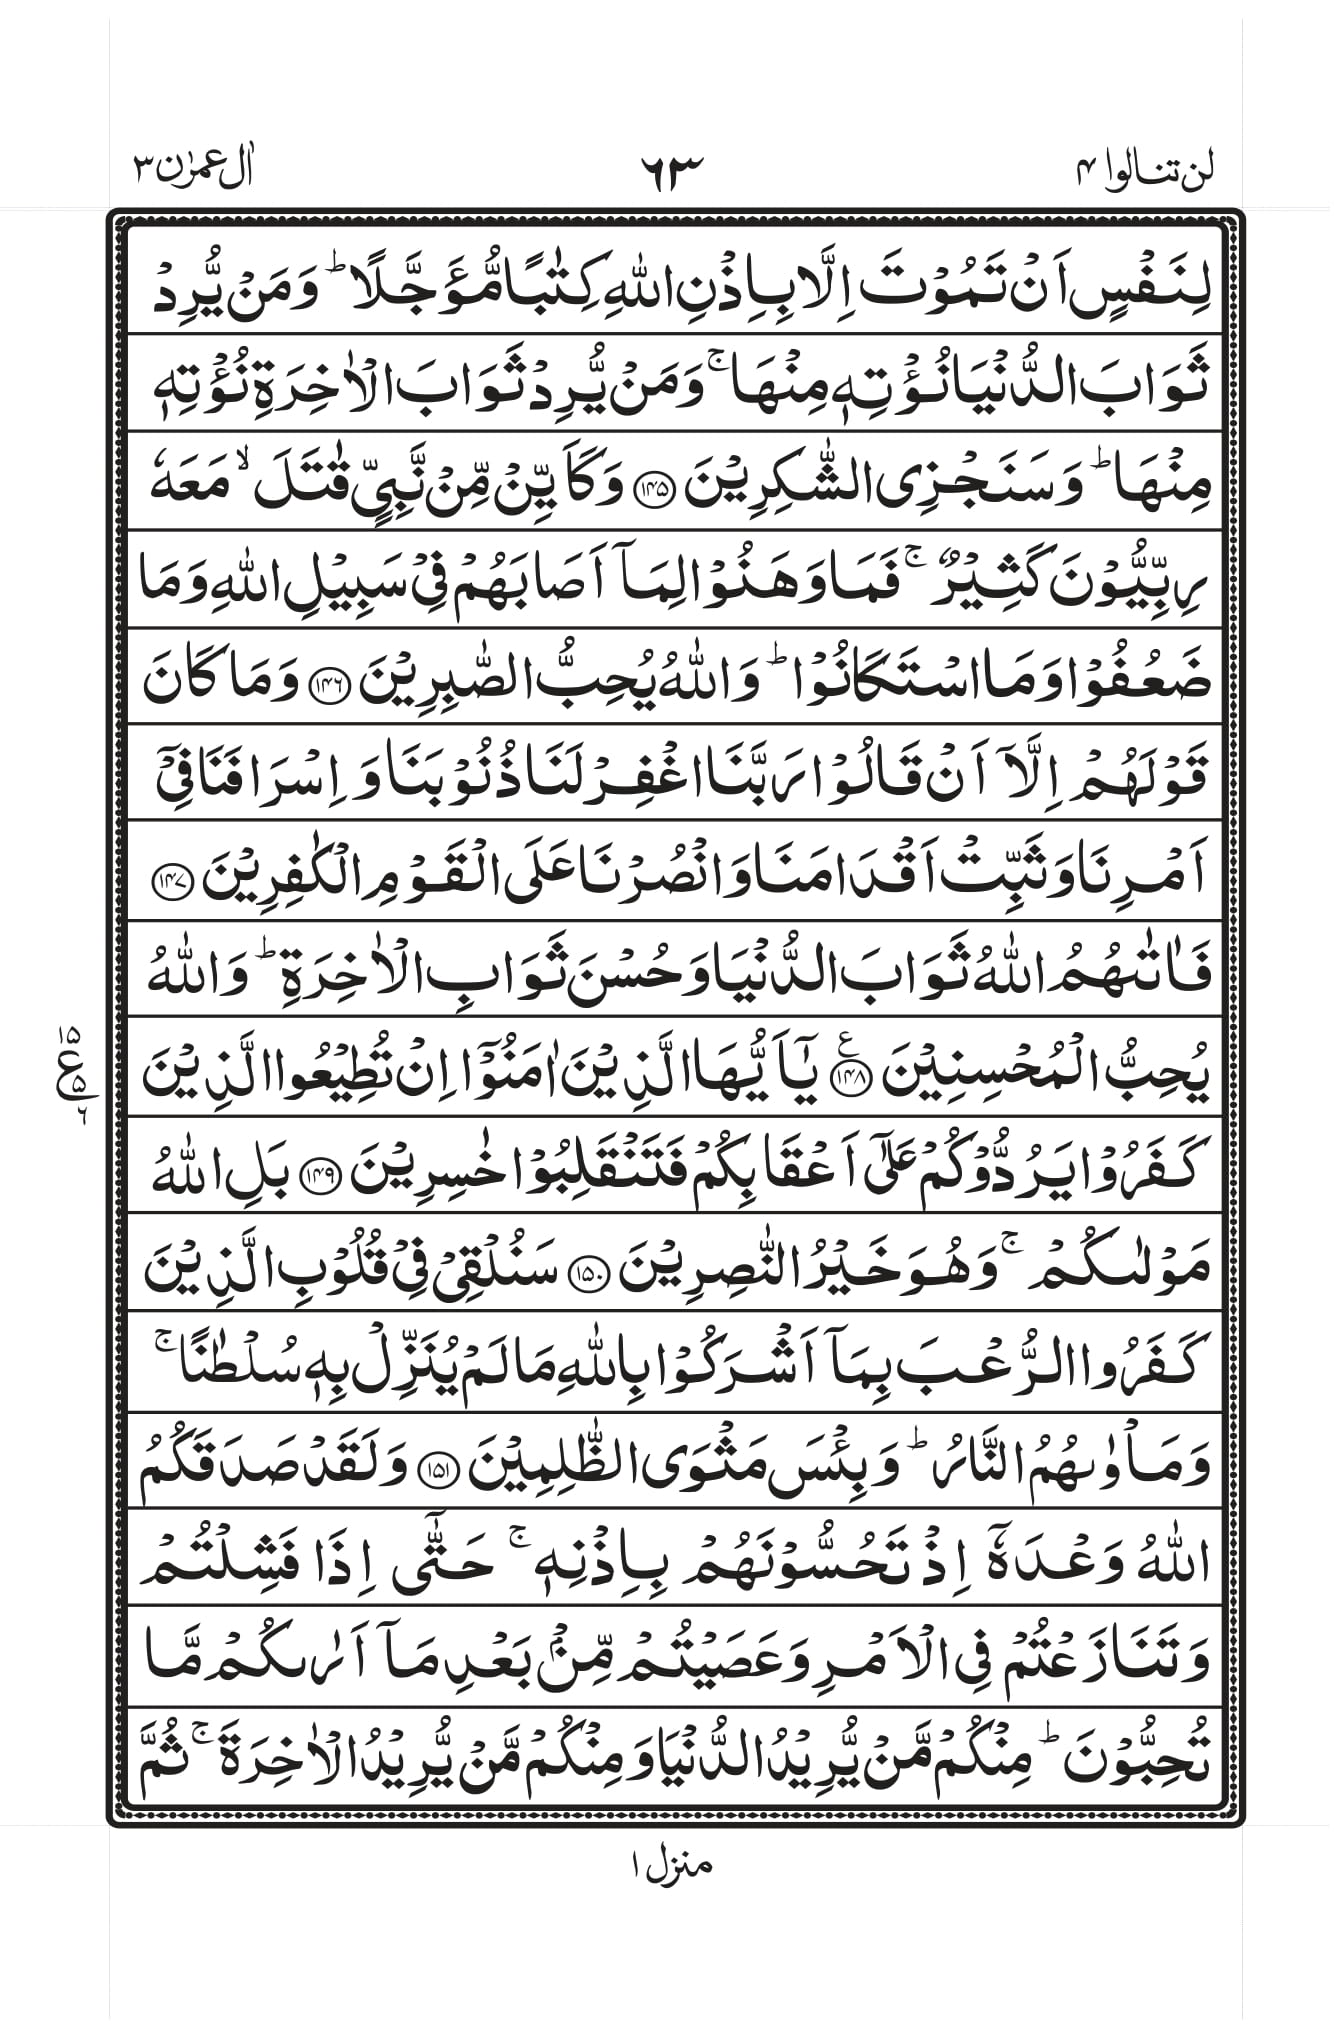 لن تنالوا ۴
۶۳
اٰل عمرٰن ۳
لِنَفْسٍ اَنْ تَمُوْتَ اِلَّا بِاِذْنِ اللّٰهِ كِتٰبًا مُّؤَجَّلًا ؕ وَمَنْ يُّرِدْ
ثَوَابَ الدُّنْيَا نُؤْتِهٖ مِنْهَا ۚ وَمَنْ يُّرِدْ ثَوَابَ الْاٰخِرَةِ نُؤْتِهٖ
مِنْهَا ؕ وَسَنَجْزِی الشّٰكِرِيْنَ ﴿۱۴۵﴾ وَكَاَيِّنْ مِّنْ نَّبِیٍّ قٰتَلَ ۙ مَعَهٗ
رِبِّيُّوْنَ كَثِيْرٌ ۚ فَمَا وَهَنُوْا لِمَاۤ اَصَابَهُمْ فِیْ سَبِيْلِ اللّٰهِ وَمَا
ضَعُفُوْا وَمَا اسْتَكَانُوْا ؕ وَاللّٰهُ يُحِبُّ الصّٰبِرِيْنَ ﴿۱۴۶﴾ وَمَا كَانَ
قَوْلَهُمْ اِلَّاۤ اَنْ قَالُوْا رَبَّنَا اغْفِرْ لَنَا ذُنُوْبَنَا وَ اِسْرَافَنَا فِیْۤ
اَمْرِنَا وَثَبِّتْ اَقْدَامَنَا وَانْصُرْنَا عَلَی الْقَوْمِ الْكٰفِرِيْنَ ﴿۱۴۷﴾
فَاٰتٰىهُمُ اللّٰهُ ثَوَابَ الدُّنْيَا وَحُسْنَ ثَوَابِ الْاٰخِرَةِ ؕ وَاللّٰهُ
يُحِبُّ الْمُحْسِنِيْنَ ﴿۱۴۸﴾ ع يٰۤاَيُّهَا الَّذِيْنَ اٰمَنُوْۤا اِنْ تُطِيْعُوا الَّذِيْنَ
۱۵
ع ۵
۶
كَفَرُوْا يَرُدُّوْكُمْ عَلٰۤی اَعْقَابِكُمْ فَتَنْقَلِبُوْا خٰسِرِيْنَ ﴿۱۴۹﴾ بَلِ اللّٰهُ
مَوْلٰىكُمْ ۚ وَهُوَ خَيْرُ النّٰصِرِيْنَ ﴿۱۵۰﴾ سَنُلْقِیْ فِیْ قُلُوْبِ الَّذِيْنَ
كَفَرُوا الرُّعْبَ بِمَاۤ اَشْرَكُوْا بِاللّٰهِ مَا لَمْ يُنَزِّلْ بِهٖ سُلْطٰنًا ۚ
وَمَاْوٰىهُمُ النَّارُ ؕ وَبِئْسَ مَثْوَی الظّٰلِمِيْنَ ﴿۱۵۱﴾ وَلَقَدْ صَدَقَكُمُ
اللّٰهُ وَعْدَهٗۤ اِذْ تَحُسُّوْنَهُمْ بِاِذْنِهٖ ۚ حَتّٰۤی اِذَا فَشِلْتُمْ
وَتَنَازَعْتُمْ فِی الْاَمْرِ وَعَصَيْتُمْ مِّنْۢ بَعْدِ مَاۤ اَرٰىكُمْ مَّا
تُحِبُّوْنَ ؕ مِنْكُمْ مَّنْ يُّرِيْدُ الدُّنْيَا وَمِنْكُمْ مَّنْ يُّرِيْدُ الْاٰخِرَةَ ۚ ثُمَّ
منزل ۱